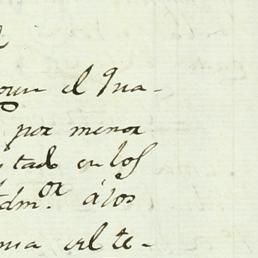 el Gua-
por menor
tado en los
Adm.ᵒʳ á los
el te-